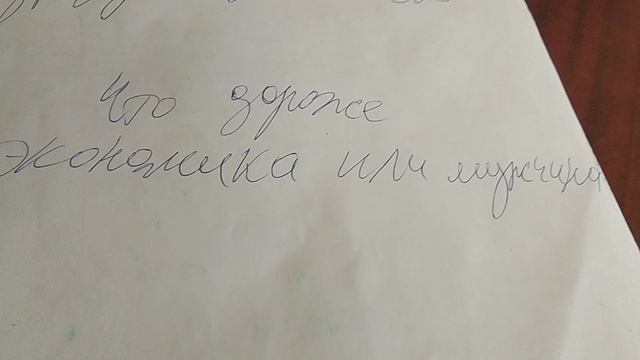 Что дороже
экономика или мужчина